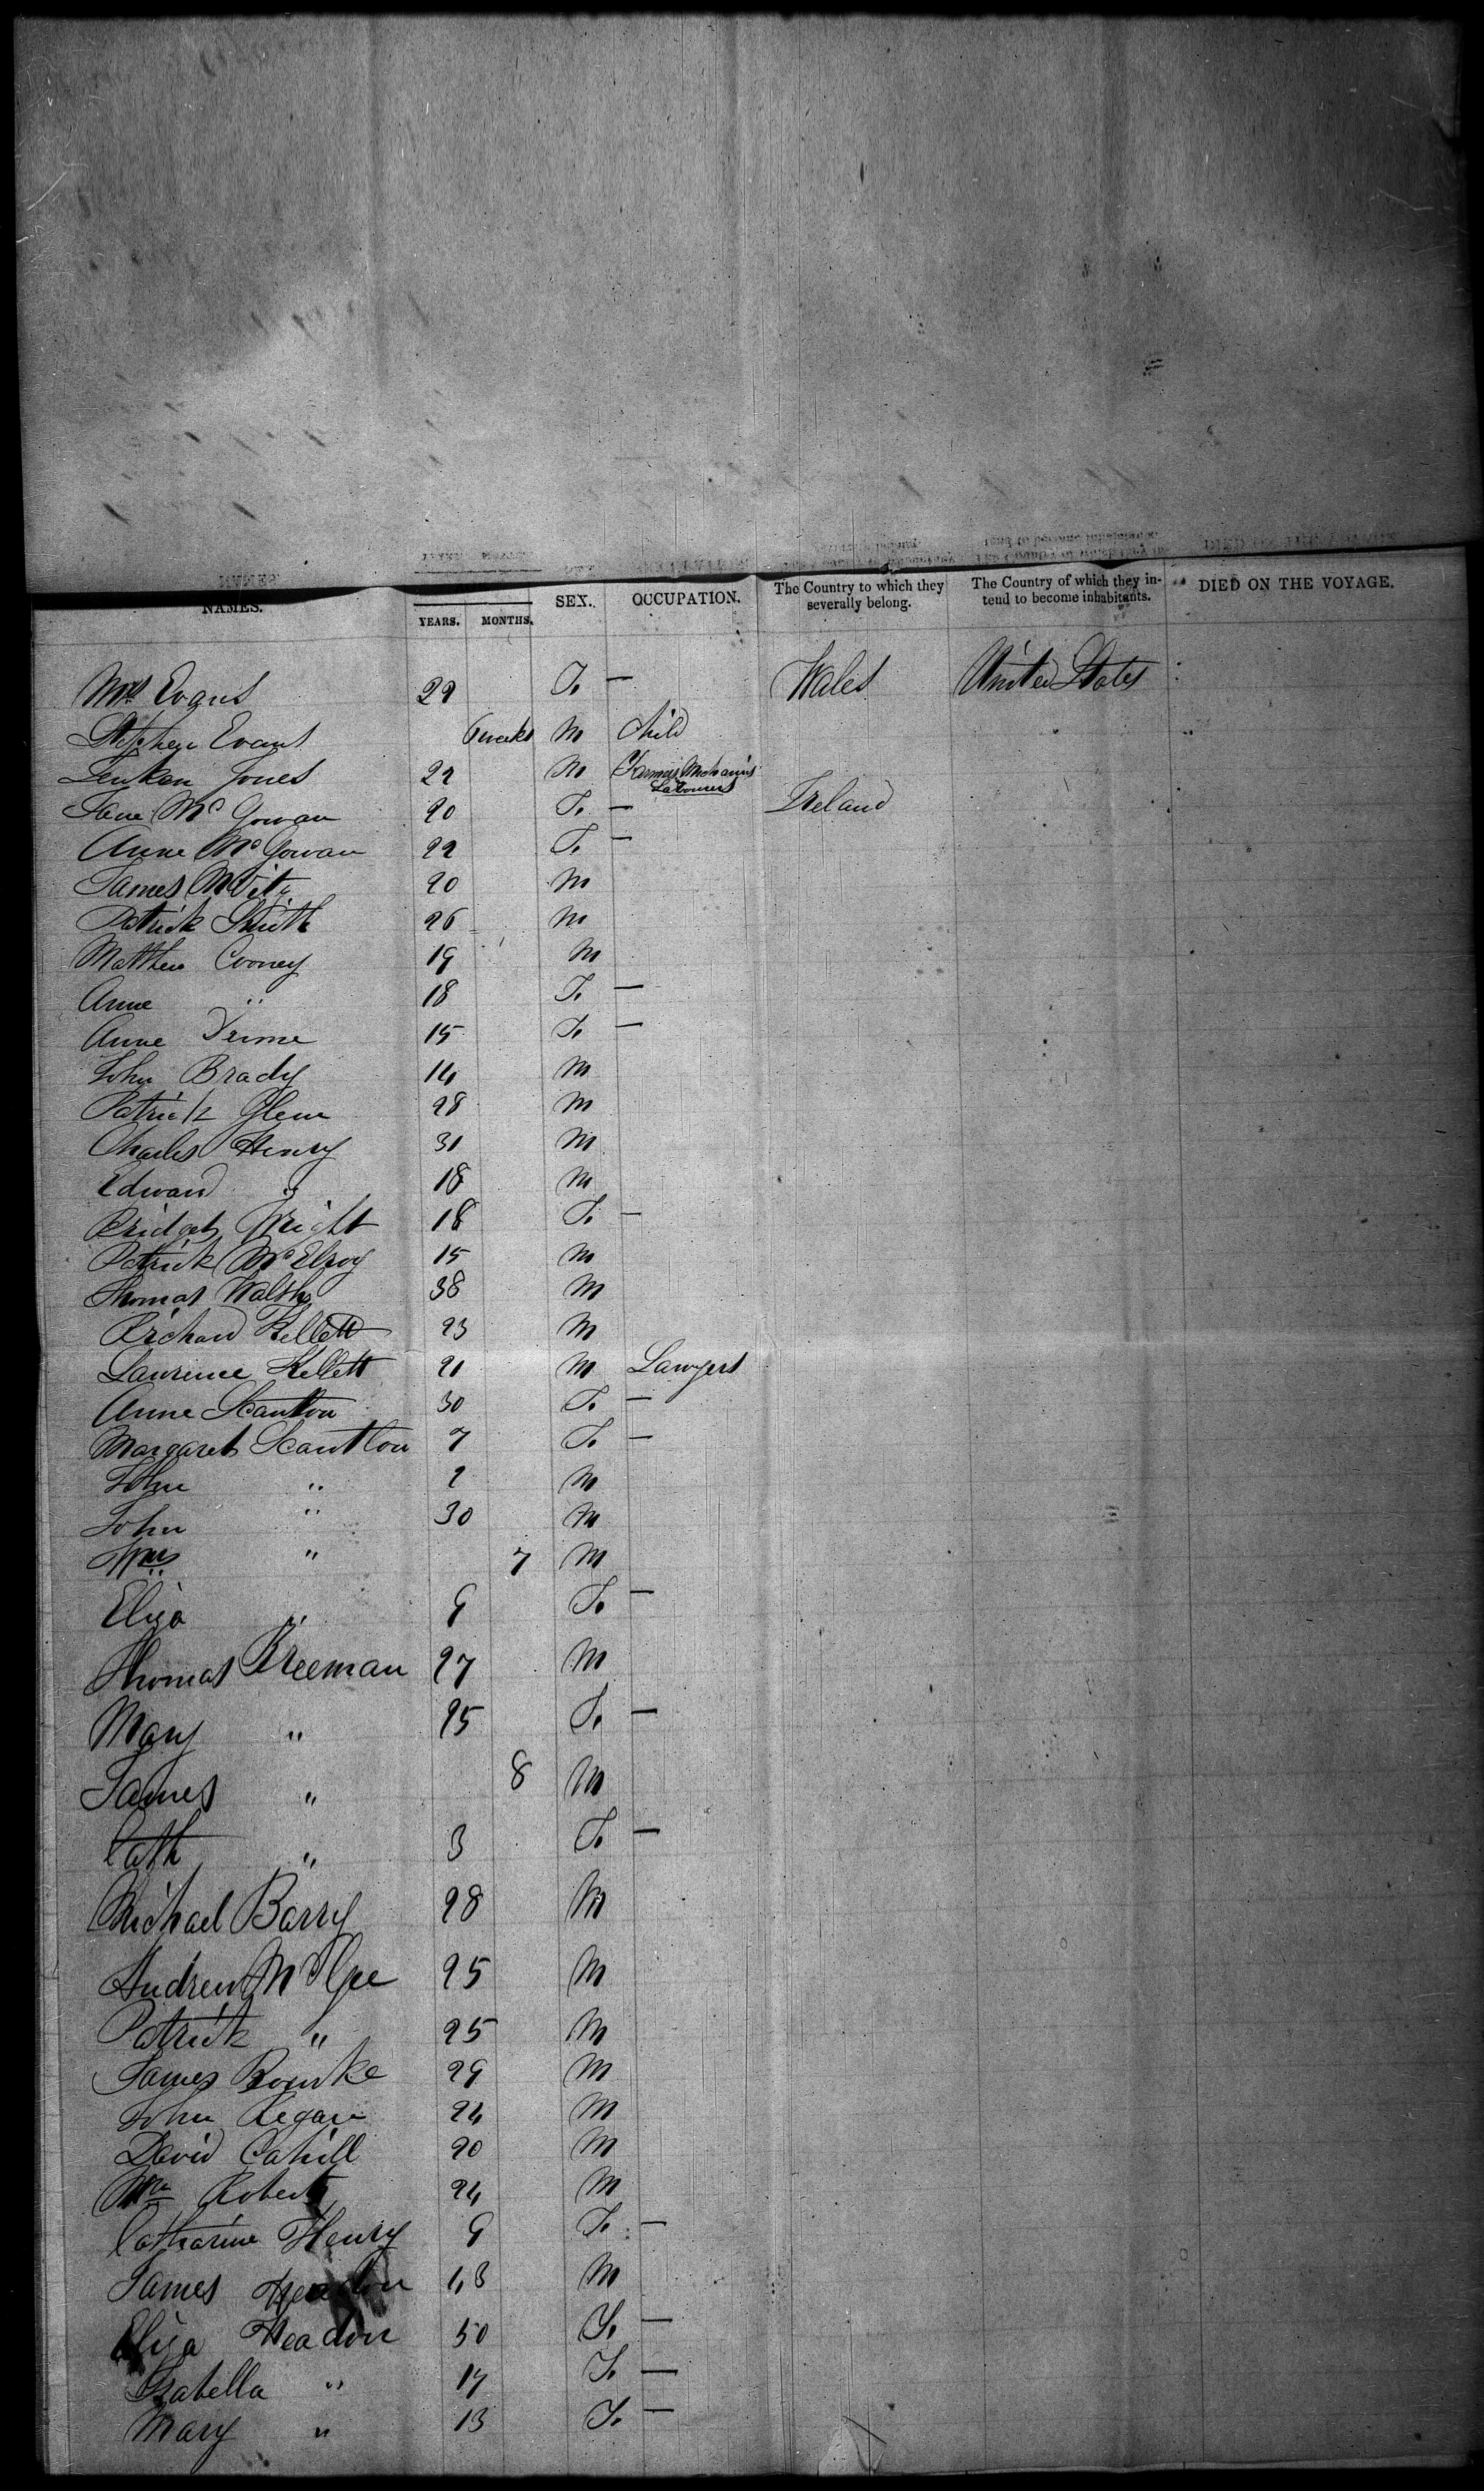 NAMES. YEARS. MONTHS. SEX. OCCUPATION. The Country to which they severally belong. The Country of which they intend to become inhabitants. DIED ON THE VOYAGE.
Mrs Evans 22 F. — Wales United States
Stephen Evans 6 weeks M Child
Jenken Jones 22 M Farmers Mechanics Labourers
Jane McGowan 20 F. — Ireland
Anne McGowan 22 F. —
James 20 M
Patrick Smith 26 M
Matthew Cooney 19 M
Anne " 18 F. —
Anne 15 F. —
John Brady 14 M
Patrick Glenn 28 M
Charles Henry 31 M
Edward " 18 M
Bridget Wright 18 F. —
Patrick McElroy 15 M
Thomas Walsh 38 M
Richard Kellett 23 M
Laurence Kellett 21 M Lawyers
Anne Scantlon 30 F. —
Margaret Scantlon 7 F. —
John " 2 M
John " 30 M
Wm " 7 M
Eliza " 9 F. —
Thomas Freeman 27 M
Mary " 25 F. —
James " 8 M
Cath " 3 F. —
Michael Barry 28 M
Andrew McGee 25 M
Patrick " 25 M
James Rourke 29 M
John Regan 24 M
David Cahill 20 M
Wm Roberts 24 M
Catharine Henry 9 F. —
James Headon 48 M
Eliza Headon 50 F. —
Isabella " 17 F. —
Mary " 13 F. —